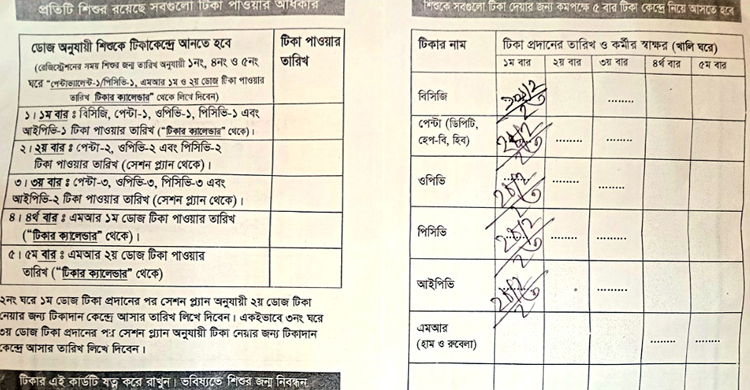 প্রতিটি শিশুর রয়েছে সবগুলো টিকা পাওয়ার অধিকার
ডোজ অনুযায়ী শিশুকে টিকাকেন্দ্রে আনতে হবে
(রেজিস্ট্রেশনের সময় শিশুর জন্ম তারিখ অনুযায়ী ১নং, ৪নং ও ৫নং
ঘরে "পেন্টাভ্যালেন্ট-১/পিসিভি-১, এমআর ১ম ও ২য় ডোজ টিকা পাওয়ার
তারিখ টিকার ক্যালেন্ডার" থেকে লিখে দিবেন)
টিকা পাওয়ার
তারিখ
১। ১ম বার ঃ বিসিজি, পেন্টা-১, ওপিভি-১, পিসিভি-১ এবং
আইপিভি-১ টিকা পাওয়ার তারিখ ("টিকার ক্যালেন্ডার" থেকে)।
২। ২য় বার ঃ পেন্টা-২, ওপিভি-২ এবং পিসিভি-২
টিকা পাওয়ার তারিখ (সেশন প্ল্যান থেকে)।
৩। ৩য় বার ঃ পেন্টা-৩, ওপিভি-৩, পিসিভি-৩ এবং
আইপিভি-২ টিকা পাওয়ার তারিখ (সেশন প্ল্যান থেকে)।
৪। ৪র্থ বার ঃ এমআর ১ম ডোজ টিকা পাওয়ার তারিখ
("টিকার ক্যালেন্ডার" থেকে)।
৫। ৫ম বার ঃ এমআর ২য় ডোজ টিকা পাওয়ার
তারিখ ("টিকার ক্যালেন্ডার" থেকে)
২নং ঘরে ১ম ডোজ টিকা প্রদানের পর সেশন প্ল্যান অনুযায়ী ২য় ডোজ টিকা
নেয়ার জন্য টিকাদান কেন্দ্রে আসার তারিখ লিখে দিবেন। একইভাবে ৩নং ঘরে
৩য় ডোজ টিকা প্রদানের পর সেশন প্ল্যান অনুযায়ী টিকা নেয়ার জন্য টিকাদান
কেন্দ্রে আসার তারিখ লিখে দিবেন।
টিকার এই কার্ডটি যত্ন করে রাখুন। ভবিষ্যতে শিশুর জন্ম নিবন্ধন,
শিশুকে সবগুলো টিকা দেয়ার জন্য কমপক্ষে ৫ বার টিকা কেন্দ্রে নিয়ে আসতে হবে
টিকার নাম
টিকা প্রদানের তারিখ ও কর্মীর স্বাক্ষর (খালি ঘরে)
১ম বার ২য় বার ৩য় বার ৪র্থ বার ৫ম বার
বিসিজি
পেন্টা (ডিপিটি,
হেপ-বি, হিব)
ওপিভি
পিসিভি
আইপিভি
এমআর
(হাম ও রুবেলা)